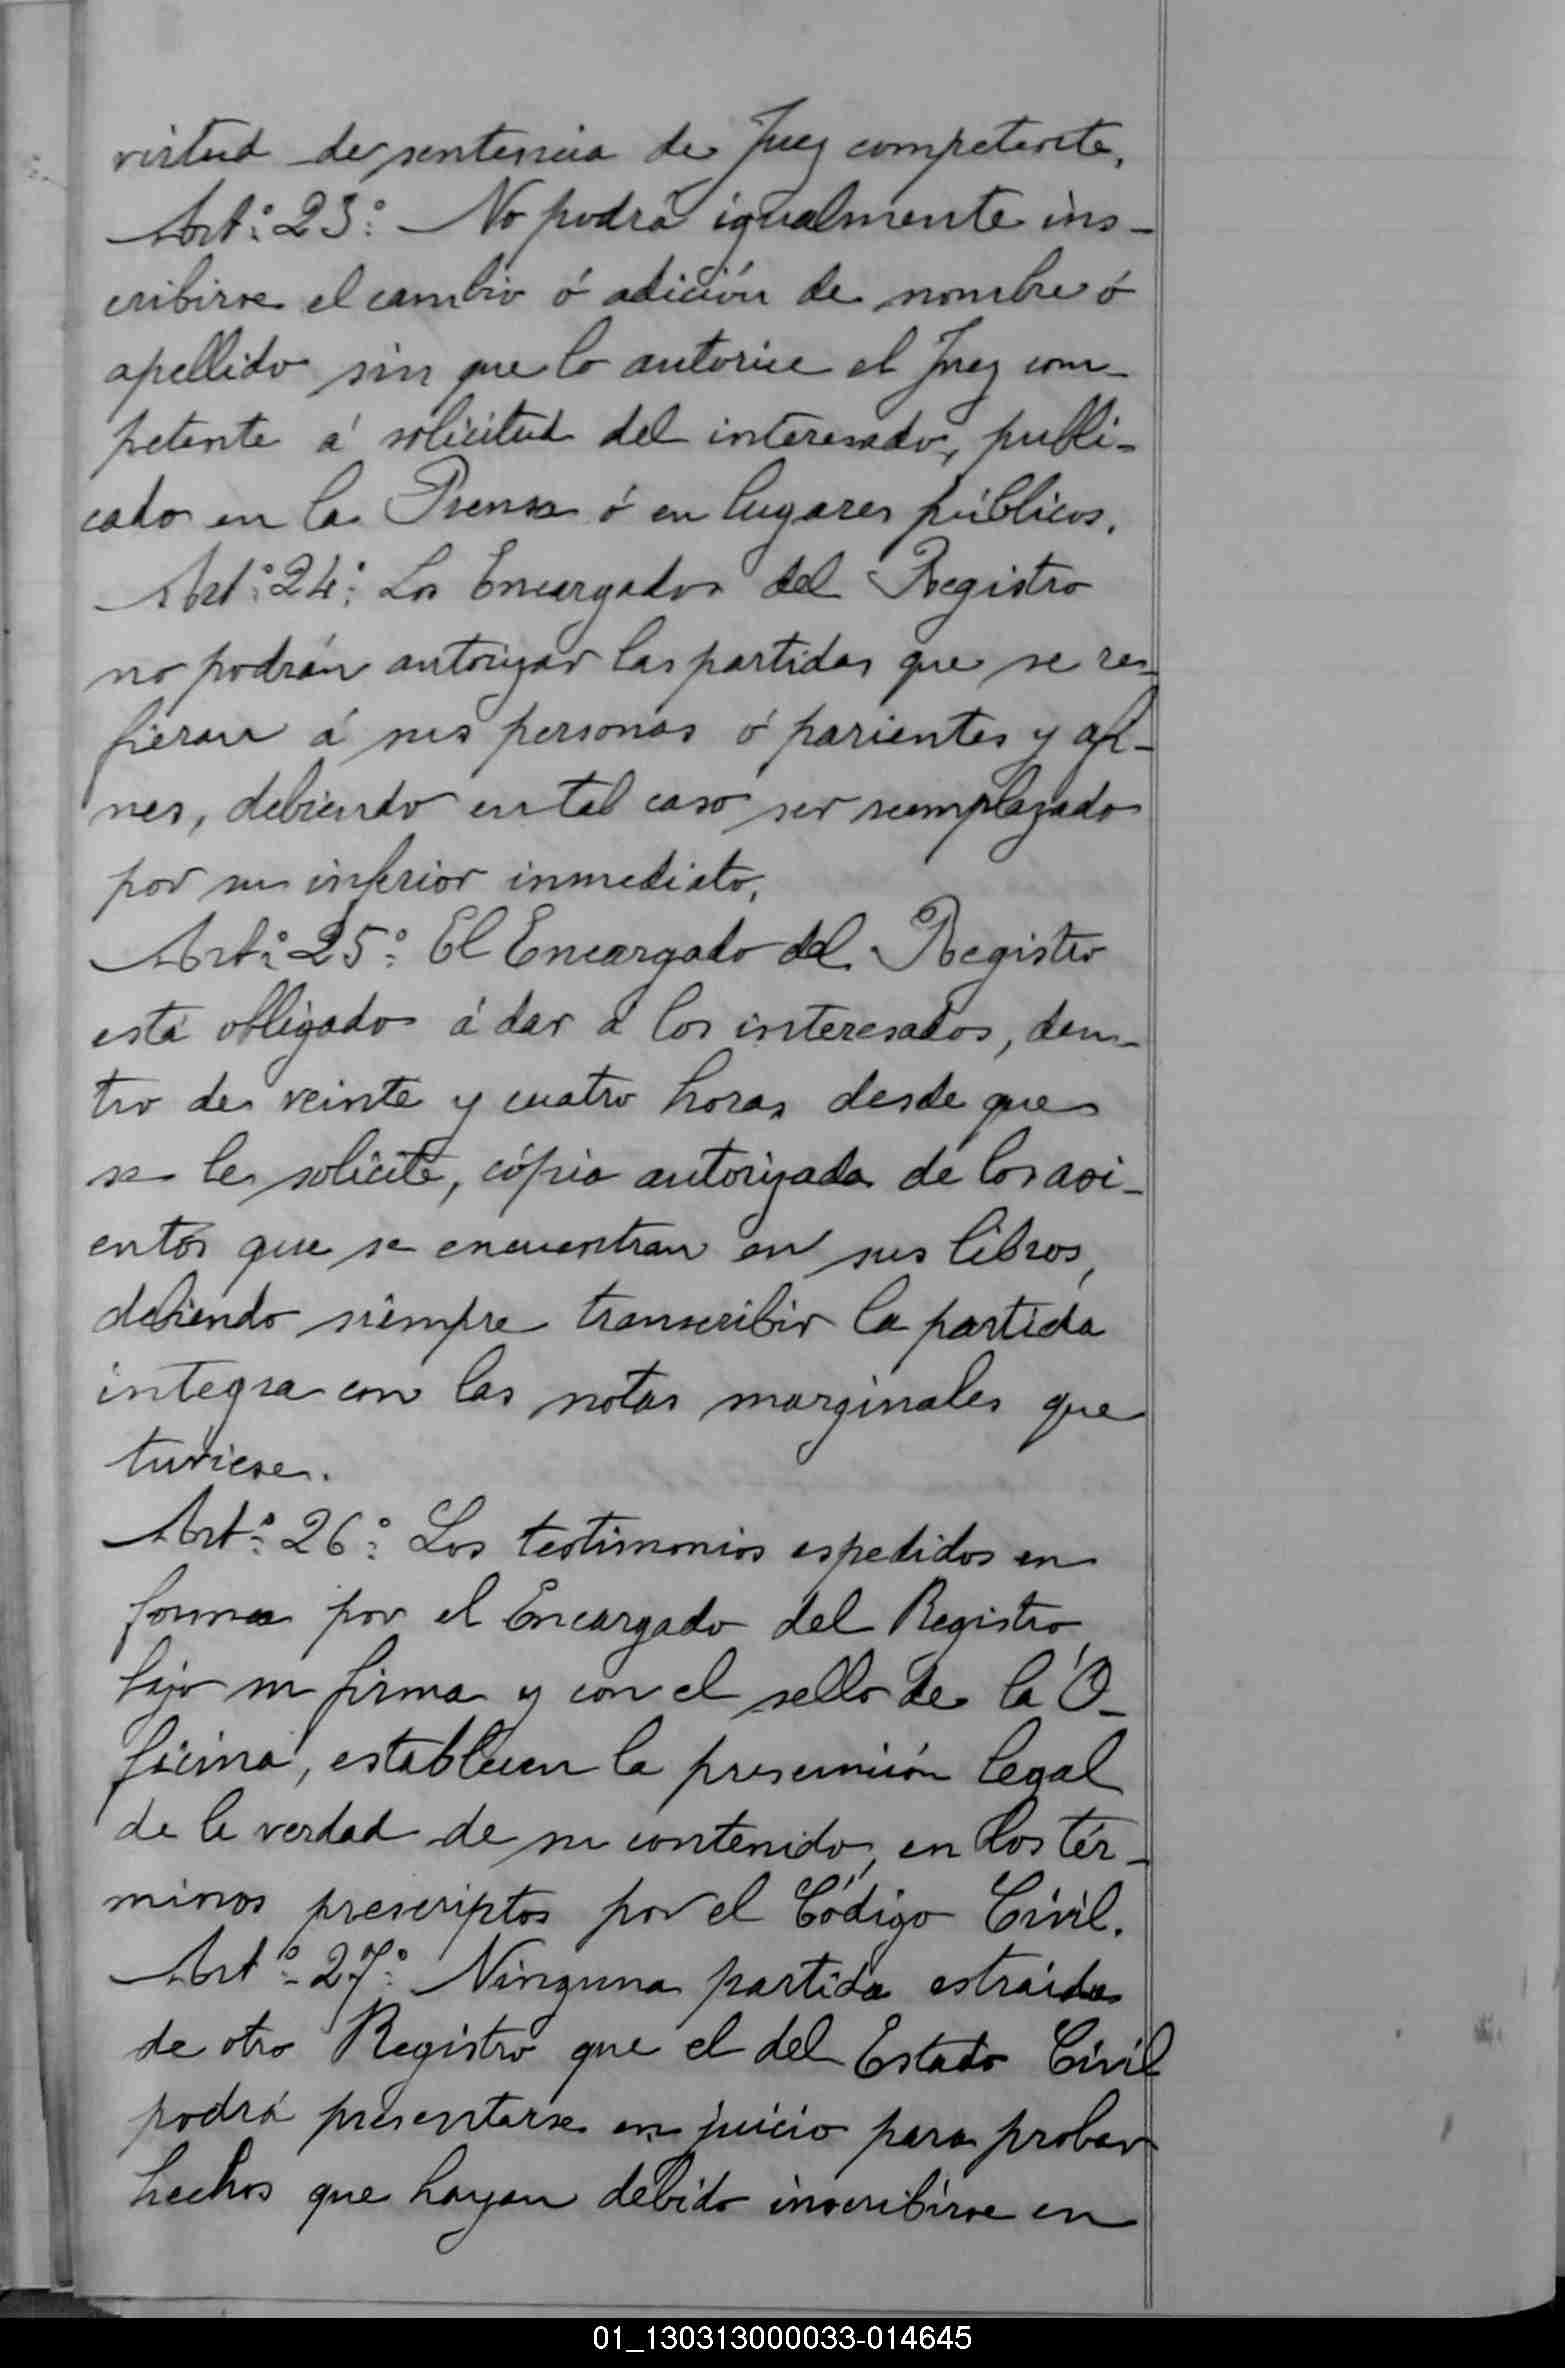 virtud de sentencia de Juez competente.
Art.º 23.º No podrá igualmente ins-
cribirse el cambio ó adición de nombre ó
apellido sin que lo autorice el Juez com-
petente á solicitud del interesado, publi-
cado en la Prensa ó en lugares públicos.
Art.º 24.º Los Encargados del Registro
no podrán autorizar las partidas que se re-
fieran á sus personas ó parientes y afi-
nes, debiendo en tal caso ser reemplazado
por su inferior inmediato.
Art.º 25.º El Encargado del Registro
está obligado á dar á los interesados, den-
tro de veinte y cuatro horas desde que
se le solicite, cópia autorizada de los asi-
entos que se encuentran en sus libros,
debiendo siempre transcribir la partida
integra con las notas marginales que
tuviese.
Art.º 26.º Los testimonios espedidos en
forma por el Encargado del Registro,
bajo su firma y con el sello de la O-
ficina, establecen la presunción legal
de la verdad de su contenido, en los tér-
minos prescriptos por el Código Civil.
Art.º 27.º Ninguna partida estraída
de otro Registro que el del Estado Civil
podrá presentarse en juicio para probar
hechos que hayan debido inscribirse en
01_130313000033-014645